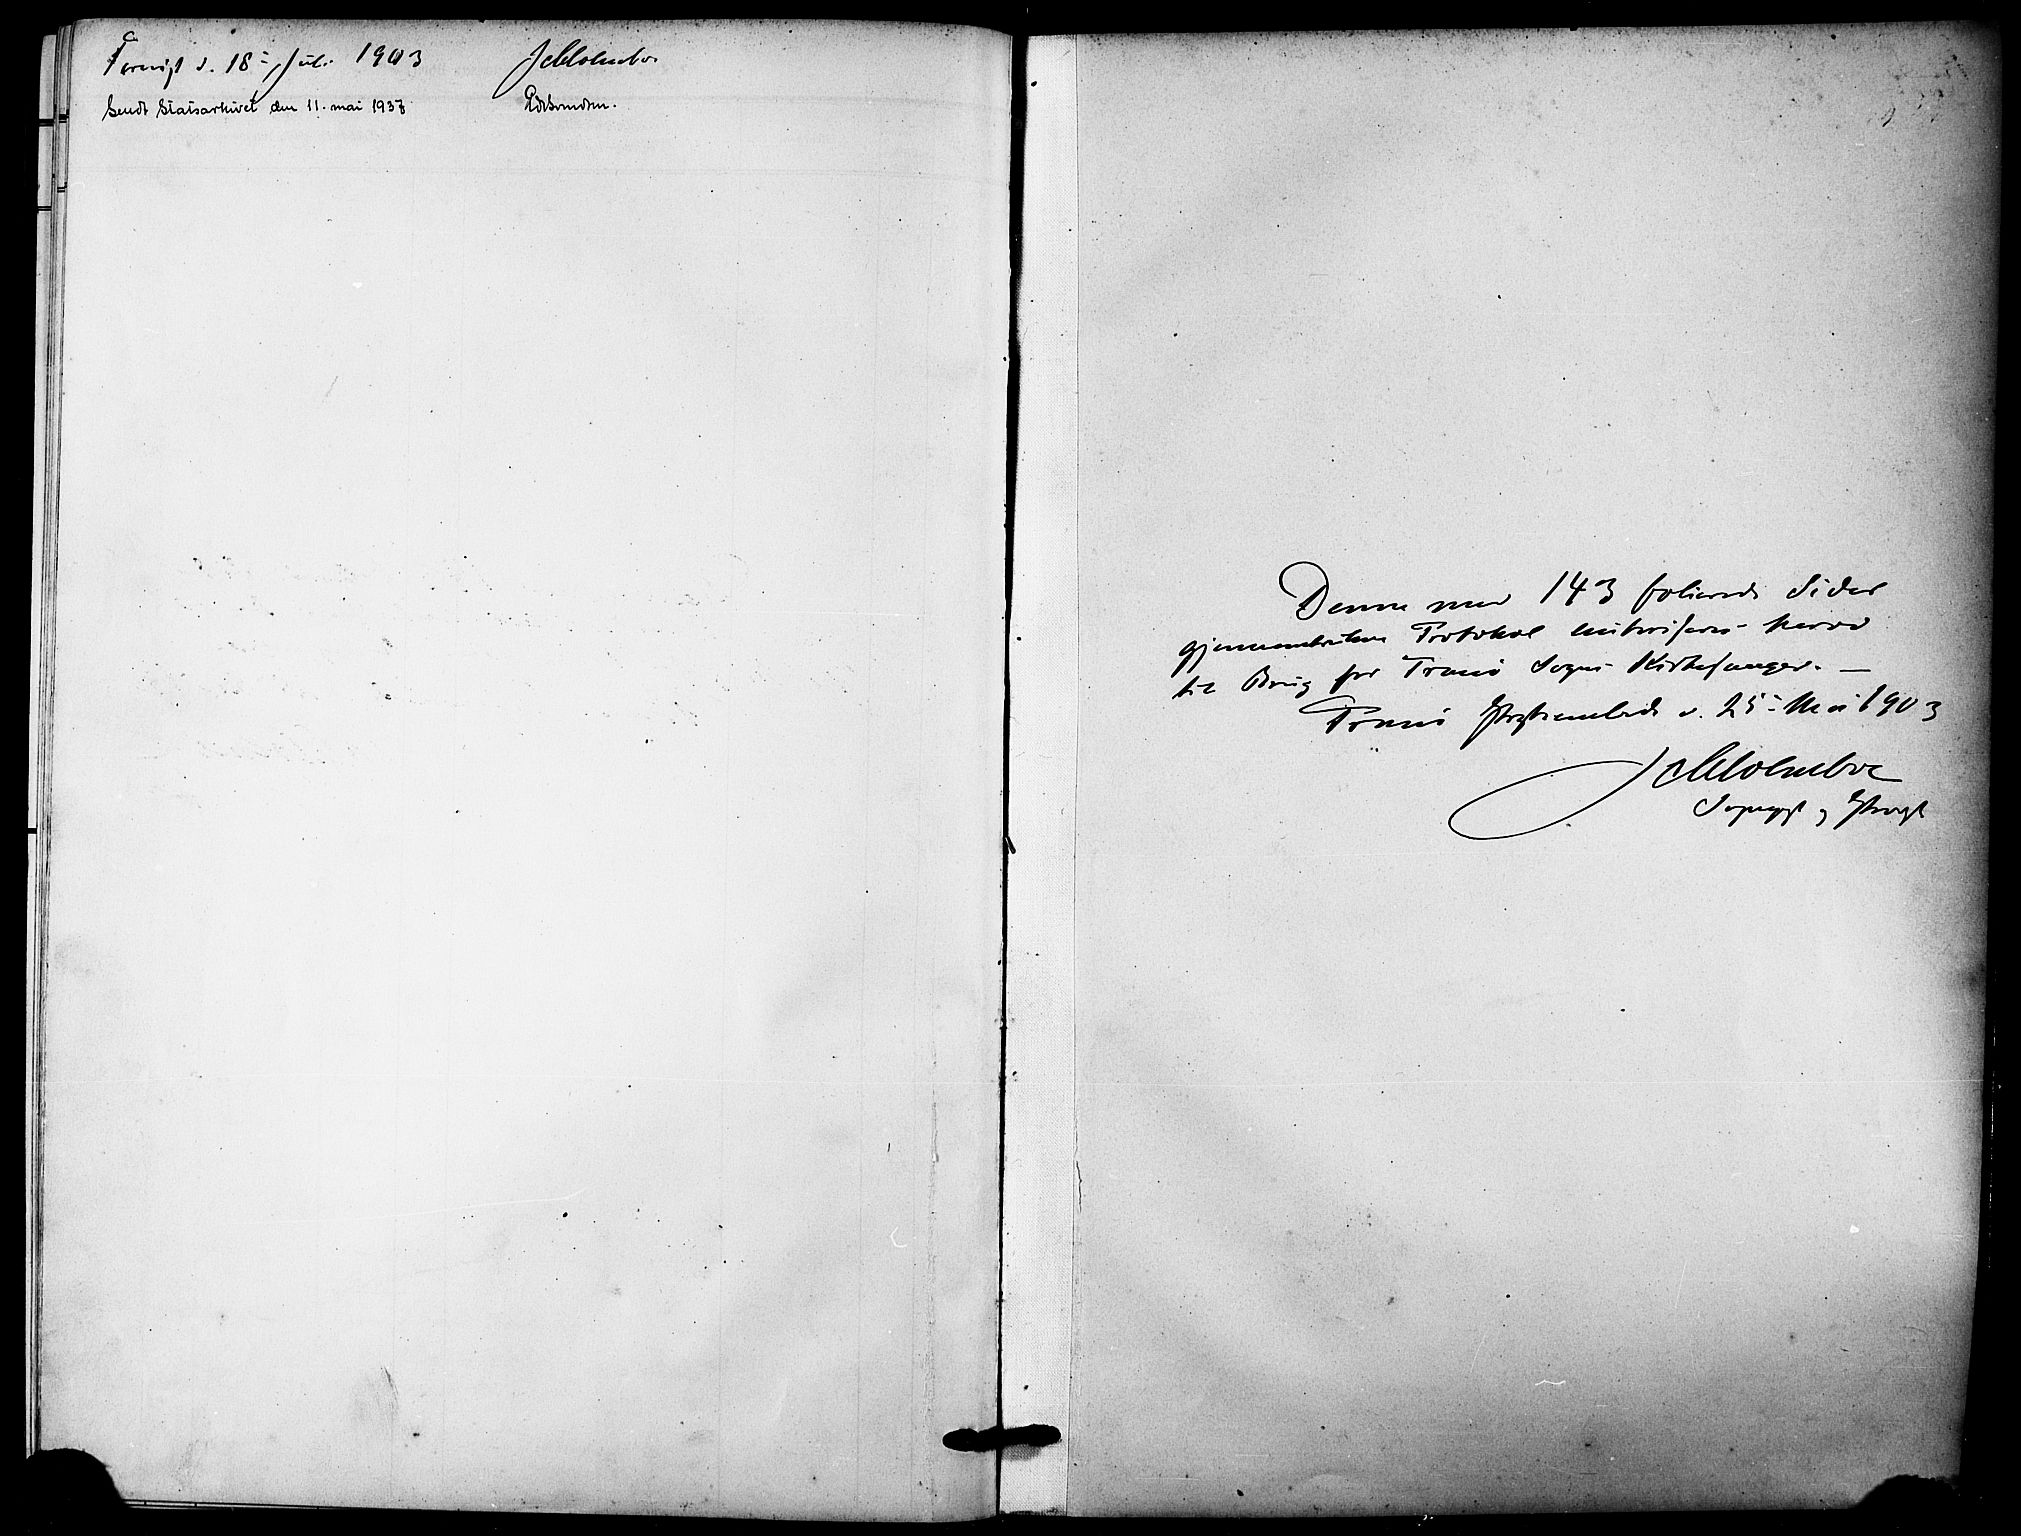 Foreviist d. 18de Juli 1903 JMolmboe
Sendt Statsarkivet den 11. mai 1937
Denne med 143 folierede Sider
gjennemdragne Protokol autoriseres herved
til Brug for Tranø Sogns Kirkesanger. —
Tranø Sogneprestembede d. 25de Mai 1903
JMolmboe
Sognepst